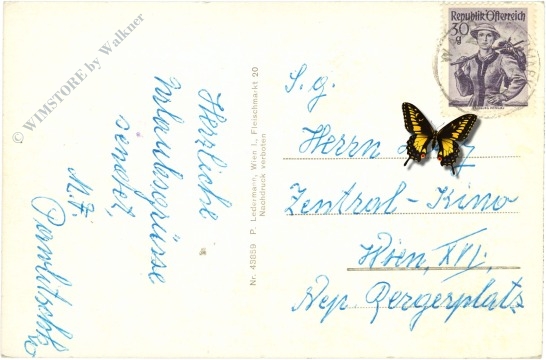 © WIMSTORE by Walkner
Herzliche
Urlaubsgrüsse
sendet,
M. F.
Nr. 43059 P. Ledermann, Wien I., Fleischmarkt 20
Nachdruck verboten
Republik Österreich
30
g
S. g.
Herrn
Zentral-Kino
Wien, XVI.,
Nep. Bergerplatz